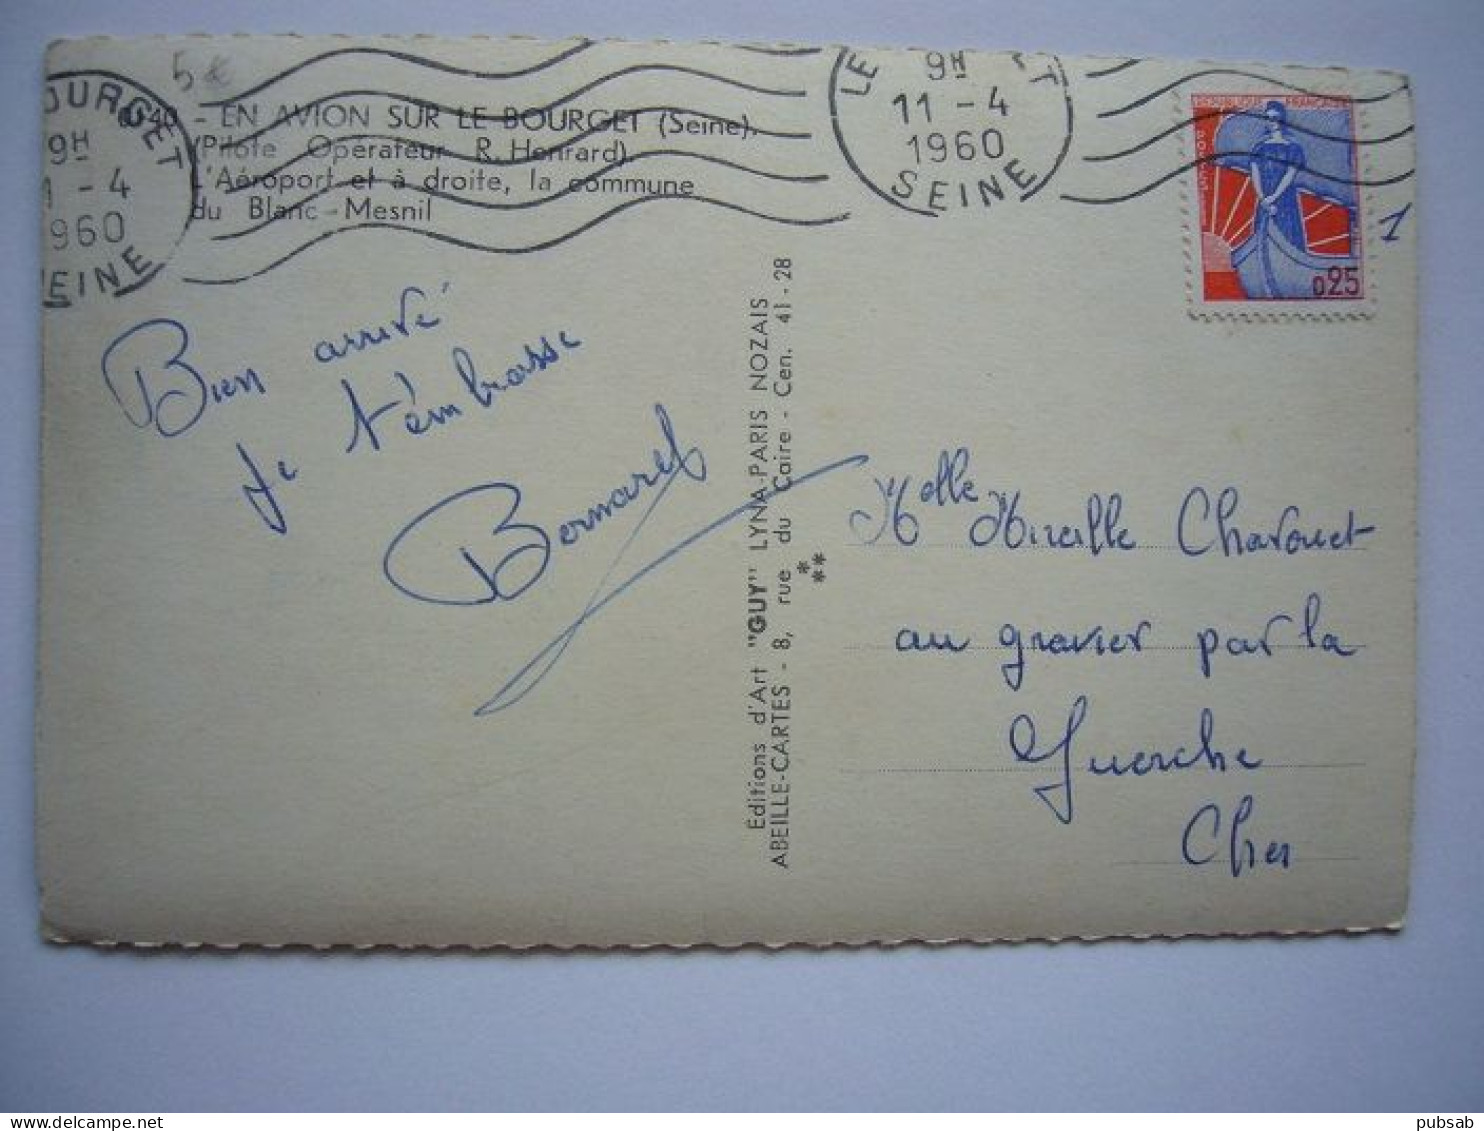 5 €
OURGET
9H
1 - 4
960
SEINE
LE
T
9H
11 - 4
1960
SEINE
40 - EN AVION SUR LE BOURGET (Seine).
(Pilote Opérateur R. Henrard).
L'Aéroport et à droite, la commune
du Blanc-Mesnil
REPUBLIQUE FRANÇAISE
POSTES
0,25
1
Bien arrivé
Je t'émbrasse
Bernard
Editions d'Art "GUY" LYNA-PARIS NOZAIS
ABEILLE-CARTES - 8, rue du Caire - Cen. 41-28
***
Melle Mireille Charouet
au gravier par la
Guerche
Cher
pubsab